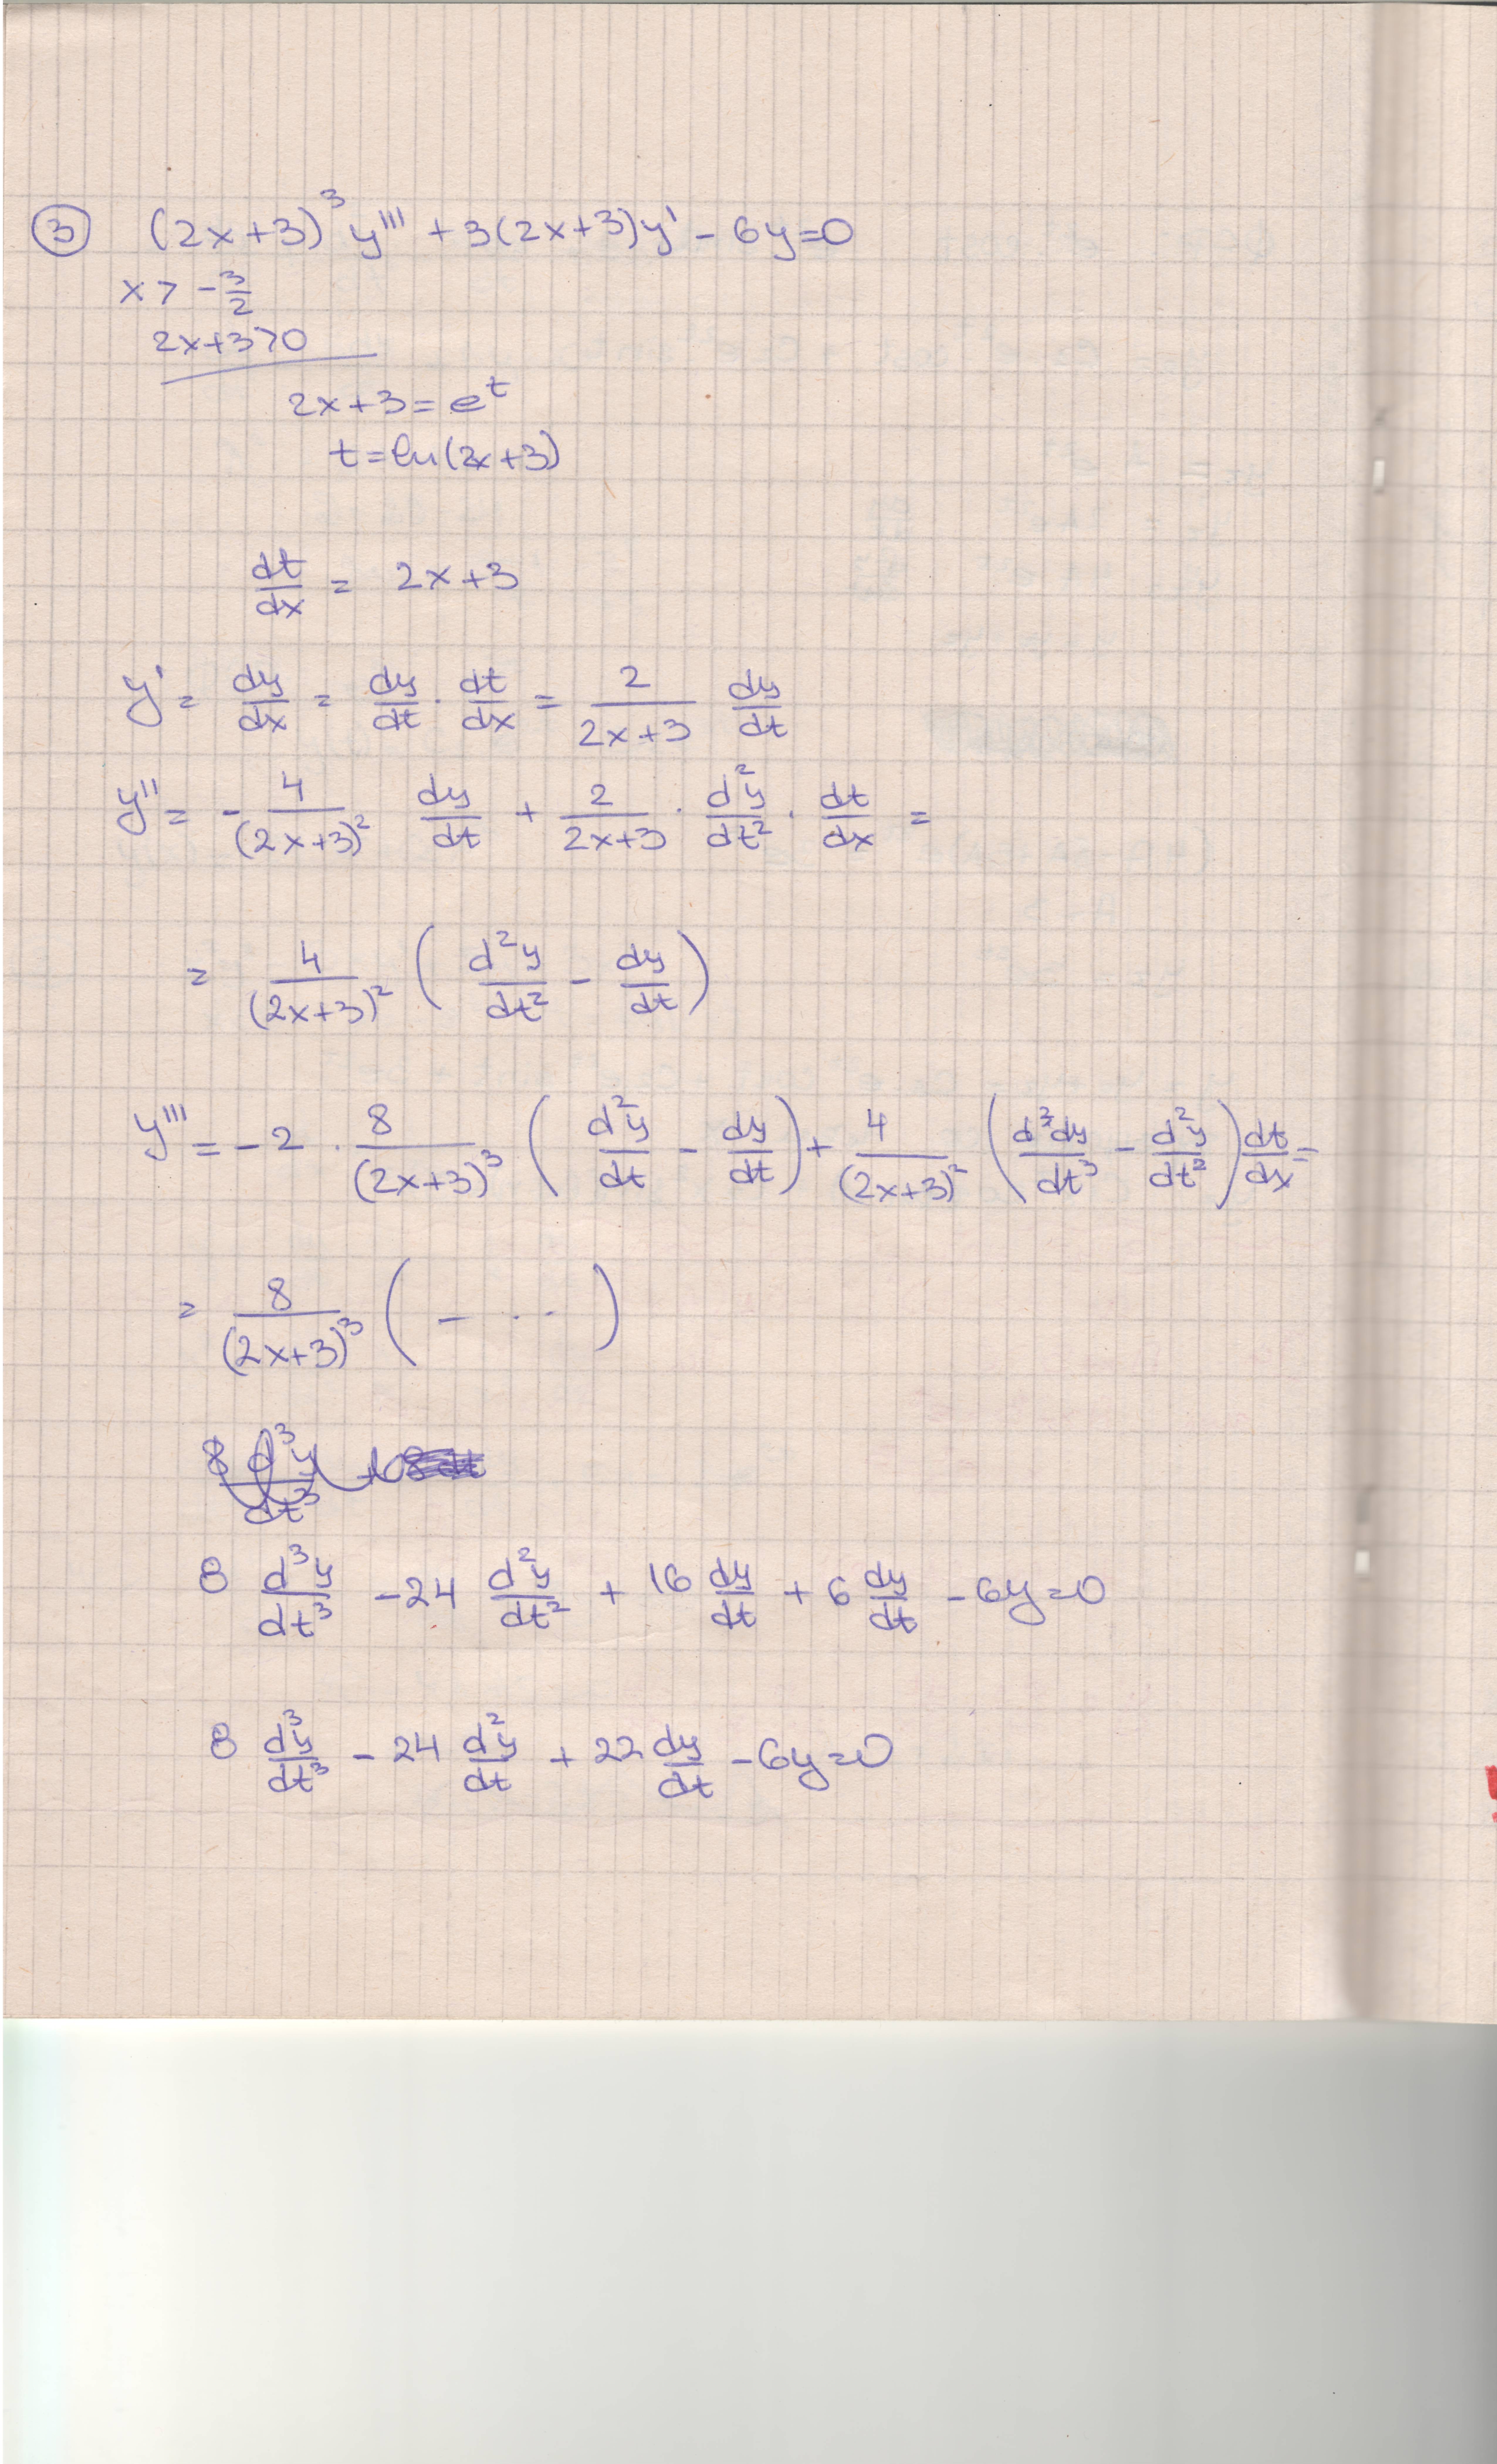 ③ (2x+3)³y''' + 3(2x+3)y' - 6y=0
x > -3/2
2x+3>0
2x+3=e^t
t=ln(2x+3)
dt/dx = 2x+3
y' = dy/dx = dy/dt · dt/dx = 2/(2x+3) dy/dt
y'' = - 4/(2x+3)² dy/dt + 2/(2x+3) · d²y/dt² · dt/dx =
= 4/(2x+3)² ( d²y/dt² - dy/dt )
y''' = -2 · 8/(2x+3)³ ( d²y/dt - dy/dt ) + 4/(2x+3)² ( d³dy/dt³ - d²y/dt² ) dt/dx =
= 8/(2x+3)³ ( - ... )
8 d³y/dt³
8 d³y/dt³ - 24 d²y/dt² + 16 dy/dt + 6 dy/dt - 6y=0
8 d³y/dt³ - 24 d²y/dt + 22 dy/dt - 6y=0